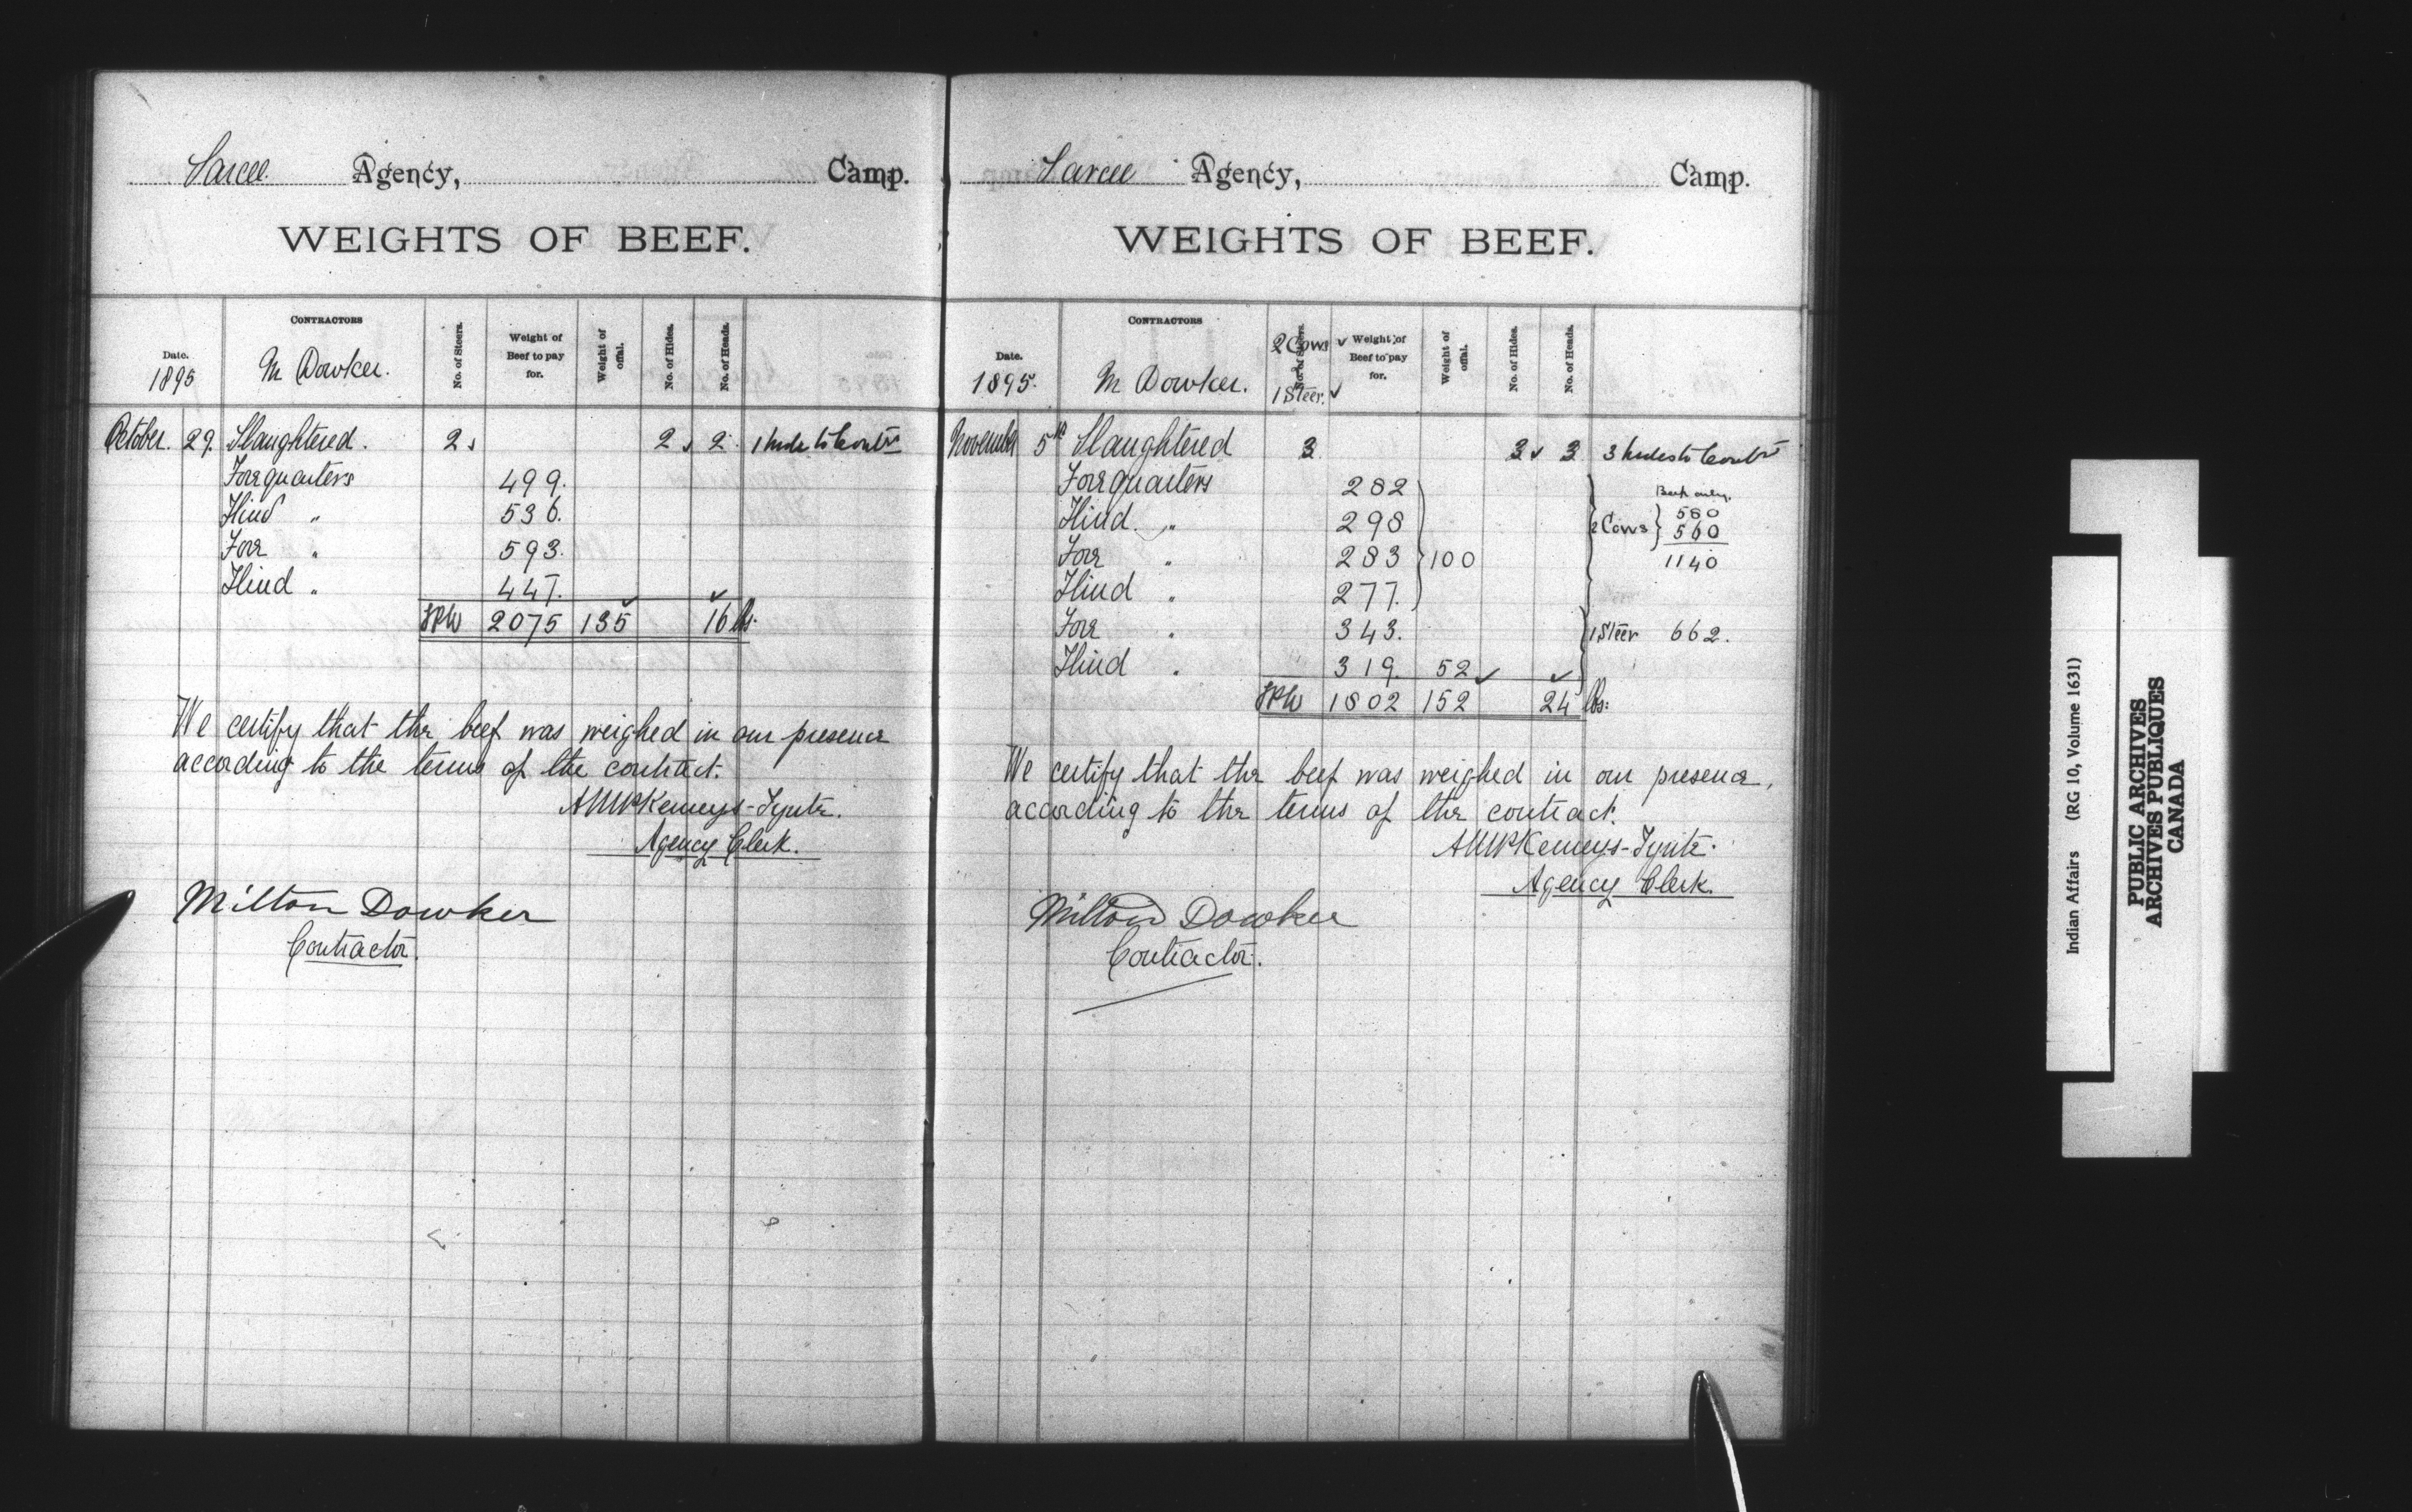 Sarcee Agency, Camp.
WEIGHTS OF BEEF.
Date. CONTRACTORS No. of Steers. Weight of Beef to pay for. Weight of offal. No. of Hides. No. of Heads.
1895 M Dowker.
October. 29. Slaughtered. 2 2 2 1 hide to Contr
Forequarters 499.
Hind " 536.
Fore " 593.
Hind " 447.
2075 135 16 lbs.
We certify that the beef was weighed in our presence
according to the terms of the contract.
Kemeys-Tynte.
Agency Clerk.
Milton Dowker
Contractor.
Sarcee Agency, Camp.
WEIGHTS OF BEEF.
Date. CONTRACTORS No. of Steers. Weight of Beef to pay for. Weight of offal. No. of Hides. No. of Heads.
1895. M Dowker. 2 Cows 1 Steer.
November 5th Slaughtered 3 3 3 3 hides to Contr
Forequarters 282 Beef only.
Hind. " 298 2 Cows 580
560
Fore " 283 100 1140
Hind " 277.
Fore " 343. 1 Steer 662.
Hind " 319. 52
1802 152 24 lbs.
We certify that the beef was weighed in our presence,
according to the terms of the contract.
Kemeys-Tynte.
Agency Clerk.
Milton Dowker
Contractor.
Indian Affairs (RG 10, Volume 1631)
PUBLIC ARCHIVES
ARCHIVES PUBLIQUES
CANADA